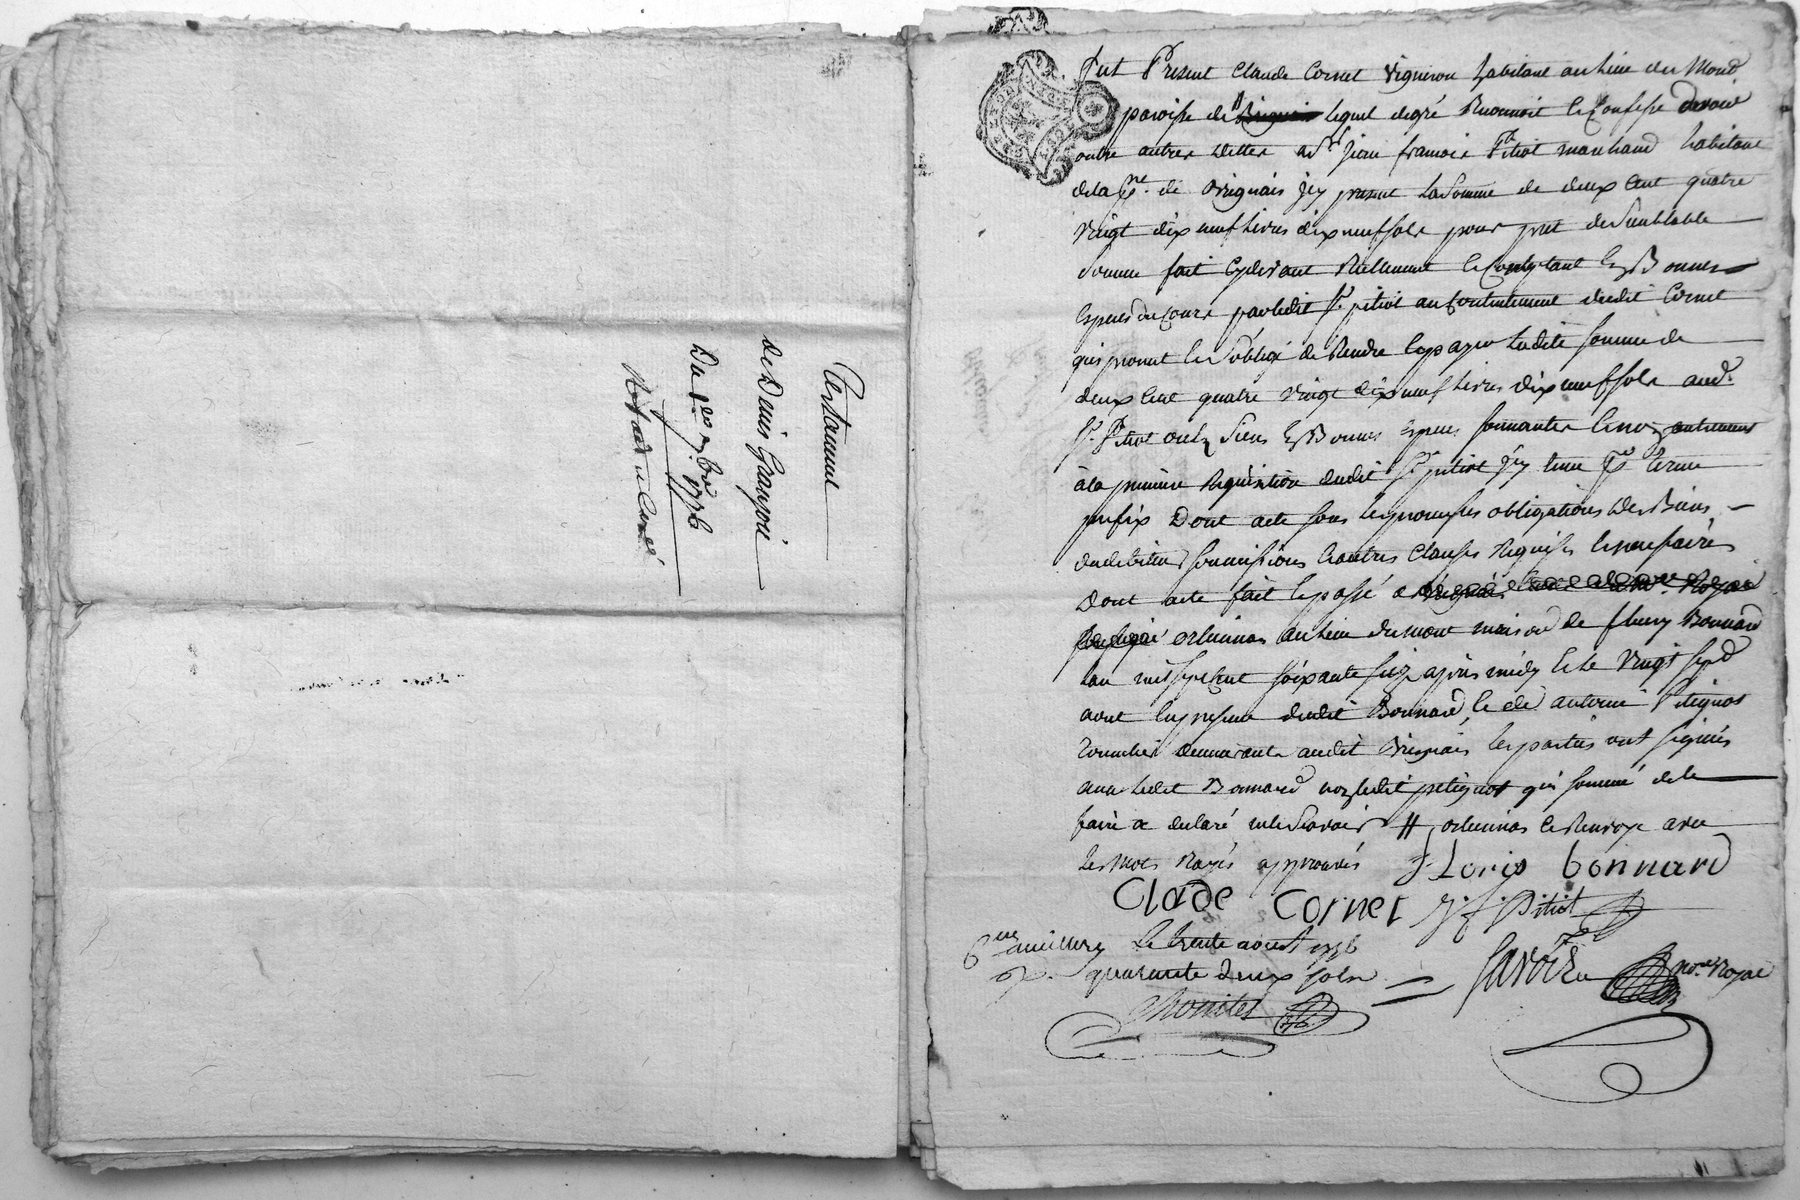 Testament
de Denis Granjon
Du 1er 7bre 1776
Fut Present Claude Cornet Vigneron habitant au lieu du Mond
paroisse de lequel degré Reconnoit & Confesse devoir
outre autres dettes a Sr jean francois Pitiot marchand habitant
dela psse de Brignais icy present la Somme de deux Cent quatre
Vingt dix neuf livres dix neuf sols pour pret de Semblable
somme fait cydevant Reellement & Comptant En Bonnes
Especes du Cours parledit Sr pitiot au Contentement dudit Cornet
qui promet & S'oblige de Rendre & payer ladite somme de
deux Cent quatre Vingt dix neuf livres dix neuf sols aud.
Sr. Pitiot ou es Siens En Bonnes Especes sonnantes & non autrement
à la premiere Requisition dudit Sr pitiot icy tenu pr terme
prefix Dont acte sous les promesses obligations Des Biens
dudebiteur soumissions & autres Clauses Requises & necessaires
Dont acte fait & passé a
orlienas au lieu du mont maison de fleury Bonnard
lan mil sept Cent soixante seize après midy & le Vingt sept
aout En presence dudit Bonnard, & de antoine Petignot
demeurant audit Brignais, les parties ont signés
avec ledit Bonnard non ledit petignot qui sommé dele
faire a declaré nele Savoir # orlienas & Renvoye avec
les mots Rayés approuvés Floris bonnard
Clade Cornet J. f. Pitiot
Le trente aoust 1776
quarante deux sols
Nore Royal